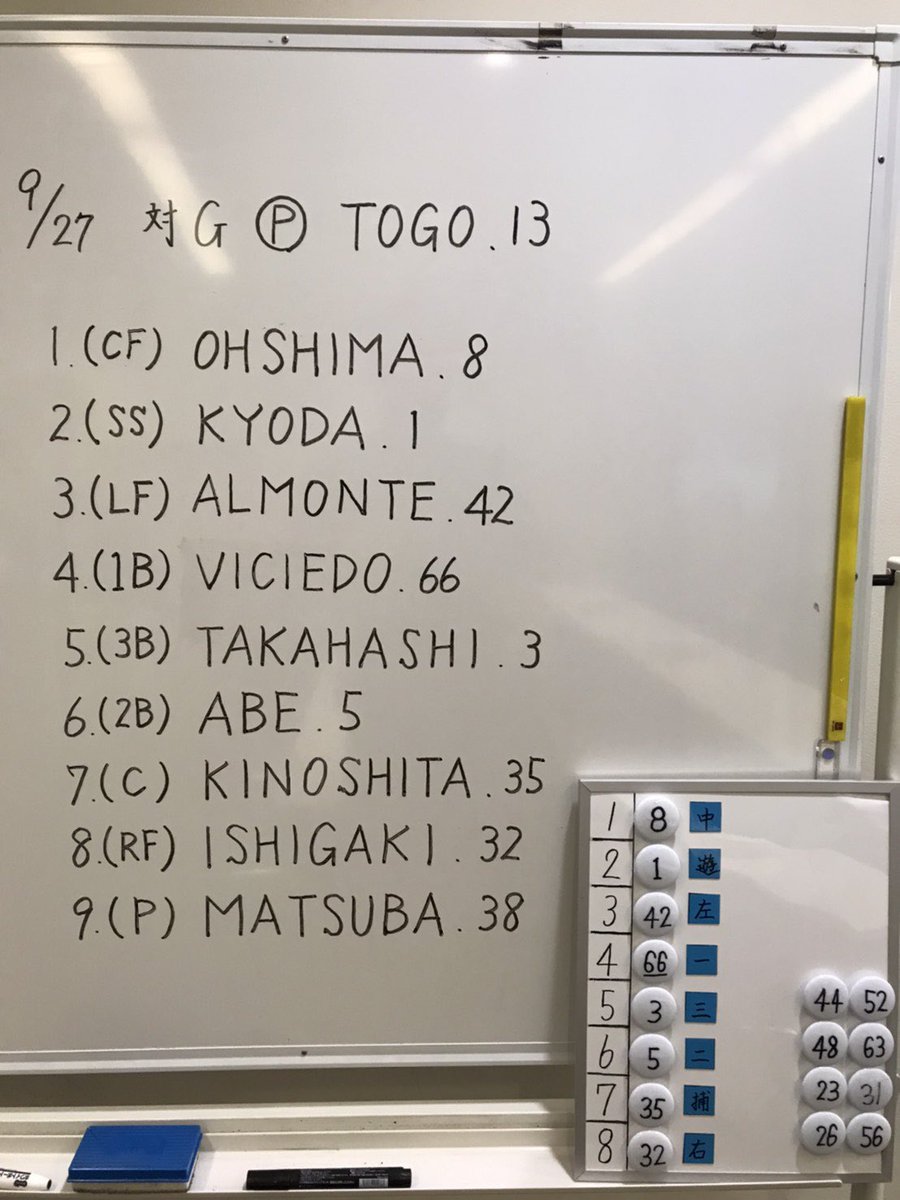 9/27 対G Ⓟ TOGO.13
1.(CF) OHSHIMA.8
2.(SS) KYODA.1
3.(LF) ALMONTE.42
4.(1B) VICIEDO.66
5.(3B) TAKAHASHI.3
6.(2B) ABE.5
7.(C) KINOSHITA.35
8.(RF) ISHIGAKI.32
9.(P) MATSUBA.38
1 8 中
2 1 遊
3 42 左
4 66 一
5 3 三
6 5 二
7 35 捕
8 32 右
44 52
48 63
23 31
26 56